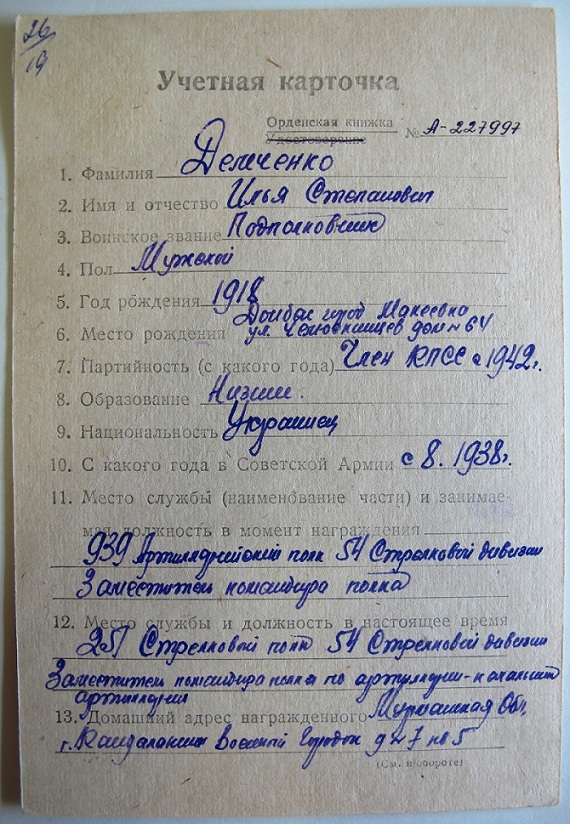 26/19
Учетная карточка
Орденская книжка
Удостоверение № А-227997
1. Фамилия Демченко
2. Имя и отчество Илья Степанович
3. Воинское звание Подполковник
4. Пол Мужской
5. Год рождения 1918
Донбас город Макеевка
6. Место рождения ул. Челюскинцев дом № 64
7. Партийность (с какого года) Член КПСС с 1942 г.
8. Образование Низшее.
9. Национальность Украинец
10. С какого года в Советской Армии с 8. 1938 г.
11. Место службы (наименование части) и занимае-
мая должность в момент награждения
939 Артиллерийский полк 54 Стрелковой дивизии
Заместитель командира полка
12. Место службы и должность в настоящее время
251 Стрелковый полк 54 Стрелковой дивизии
Заместитель командира полка по артиллерии-начальник
артиллерии
13. Домашний адрес награжденного Мурманская Обл,
г. Кандалакша Военный Городок д № 7 кв 5
(См. н/обороте)